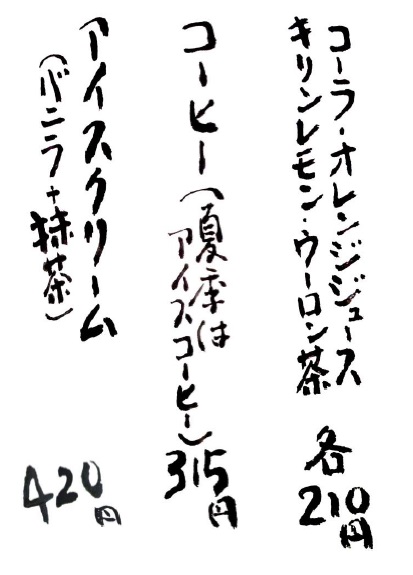 コーラ・オレンジジュース
キリンレモン・ウーロン茶
各
210
円
コーヒー(夏季は
アイスコーヒー)
315
円
アイスクリーム
(バニラ+抹茶)
420
円